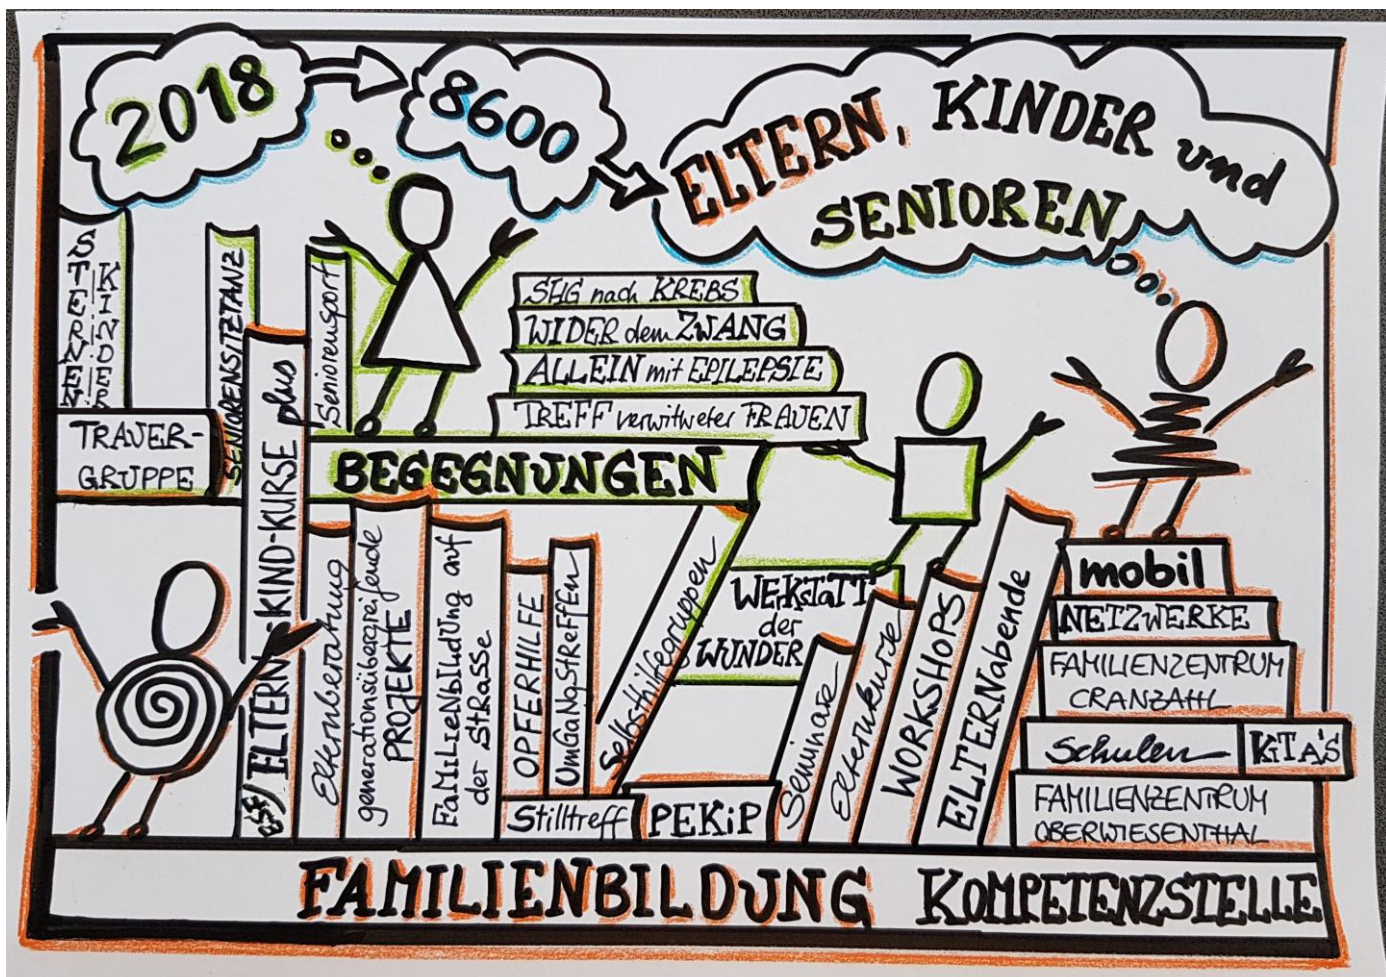 2018
8600
ELTERN, KINDER und
SENIOREN
STERNEN
KINDER
TRAUER-
GRUPPE
SENIORENSITZTANZ
Seniorensport
SHG nach KREBS
WIDER dem ZWANG
ALLEIN mit EPILEPSIE
TREFF verwitweter FRAUEN
BEGEGNUNGEN
ELTERN:KIND-KURSE plus
Elternberatung
generationsübergreifende
PROJEKTE
FaMiLieNbildUng auf
der StRaSse
OPFERHILFE
UmGaNgStReffEn
Selbsthilfegruppen
Stilltreff
PEKiP
WERKstaTT
der
WUNDER
Seminare
Elternkurse
WORKSHOPS
ELTERNabende
mobil
NETZWERKE
FAMILIENZENTRUM
CRANZAHL
Schulen
KiTA'S
FAMILIENZENTRUM
OBERWIESENTHAL
FAMILIENBILDUNG KOMPETENZSTELLE